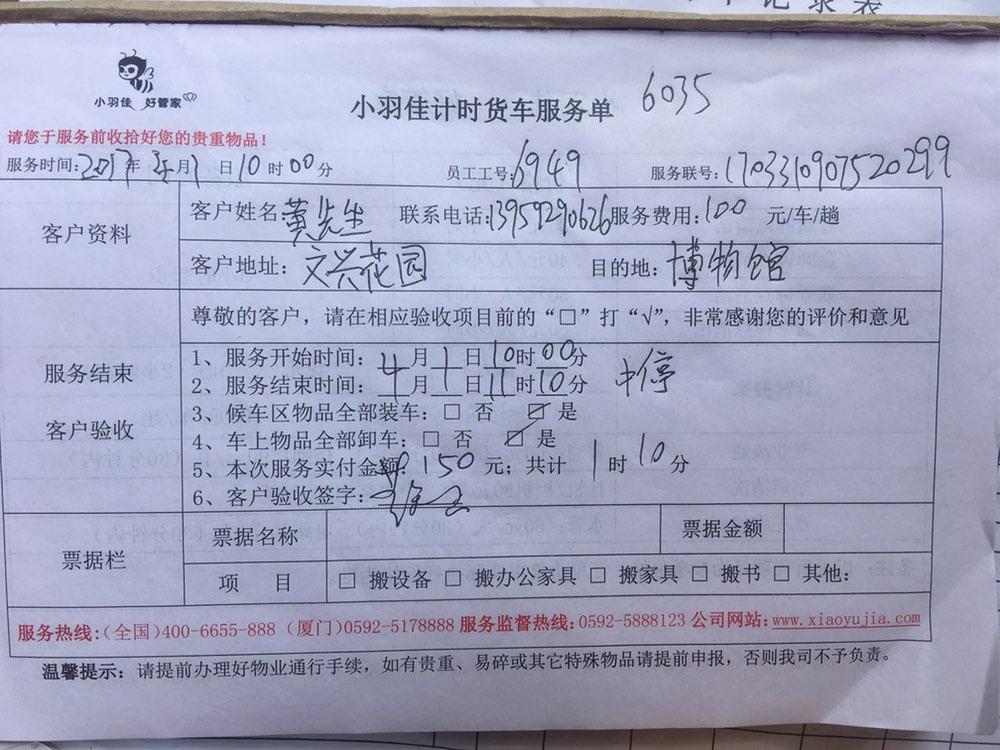 记录表
小羽佳 好管家
小羽佳计时货车服务单 6035
请您于服务前收拾好您的贵重物品！
服务时间：2017年4月1日10时00分 员工工号：6949 服务联号：1703310907520299
客户资料
客户姓名：黄先生 联系电话：13959290626 服务费用：100 元/车/趟
客户地址：文兴花园 目的地：博物馆
服务结束
客户验收
尊敬的客户，请在相应验收项目前的“□”打“√”，非常感谢您的评价和意见
1、服务开始时间：4月1日10时00分
2、服务结束时间：4月1日11时10分 中停
3、候车区物品全部装车：□ 否 ☑ 是
4、车上物品全部卸车：□ 否 ☑ 是
5、本次服务实付金额：150元；共计1时10分
6、客户验收签字：
票据栏
票据名称 票据金额
项 目 □ 搬设备 □ 搬办公家具 □ 搬家具 □ 搬书 □ 其他：
服务热线：(全国)400-6655-888 (厦门)0592-5178888 服务监督热线：0592-5888123 公司网站：www.xiaoyujia.com
温馨提示：请提前办理好物业通行手续，如有贵重、易碎或其它特殊物品请提前申报，否则我司不予负责。